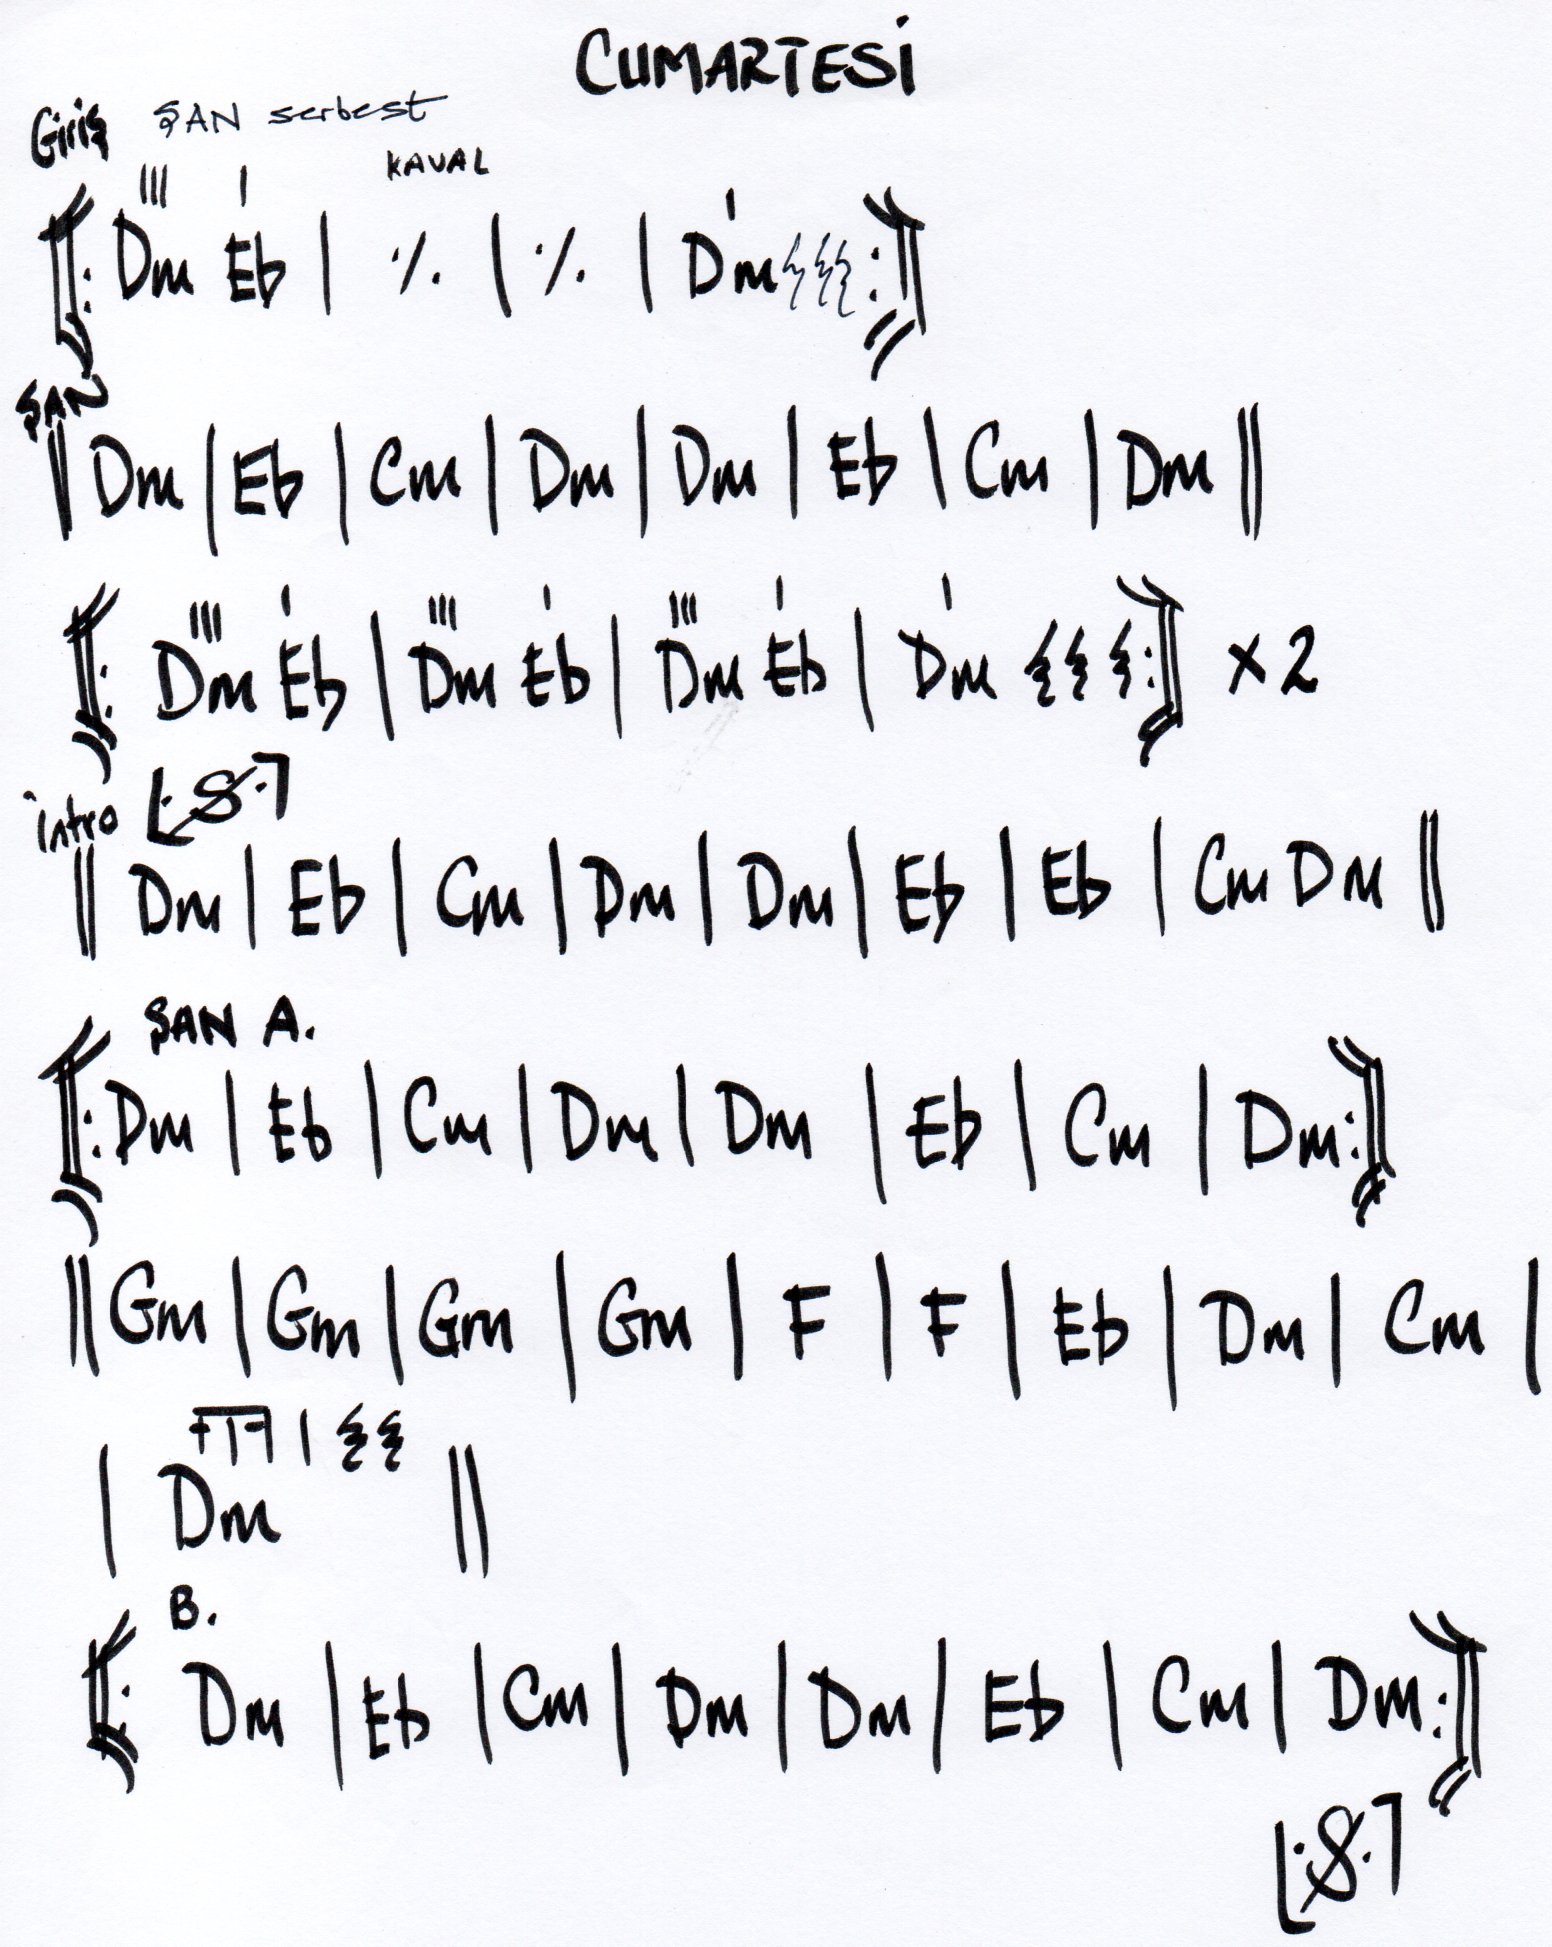 CUMARTESİ
Giriş ŞAN serbest
KAVAL
‖: Dm Eb | ٪ | ٪ | Dm :‖
ŞAN
‖ Dm | Eb | Cm | Dm | Dm | Eb | Cm | Dm ‖
‖: Dm Eb | Dm Eb | Dm Eb | Dm :‖ x2
intro 𝄋
‖ Dm | Eb | Cm | Dm | Dm | Eb | Eb | Cm Dm ‖
ŞAN A.
‖: Dm | Eb | Cm | Dm | Dm | Eb | Cm | Dm :‖
‖ Gm | Gm | Gm | Gm | F | F | Eb | Dm | Cm |
| Dm ‖
B.
‖: Dm | Eb | Cm | Dm | Dm | Eb | Cm | Dm :‖
𝄋